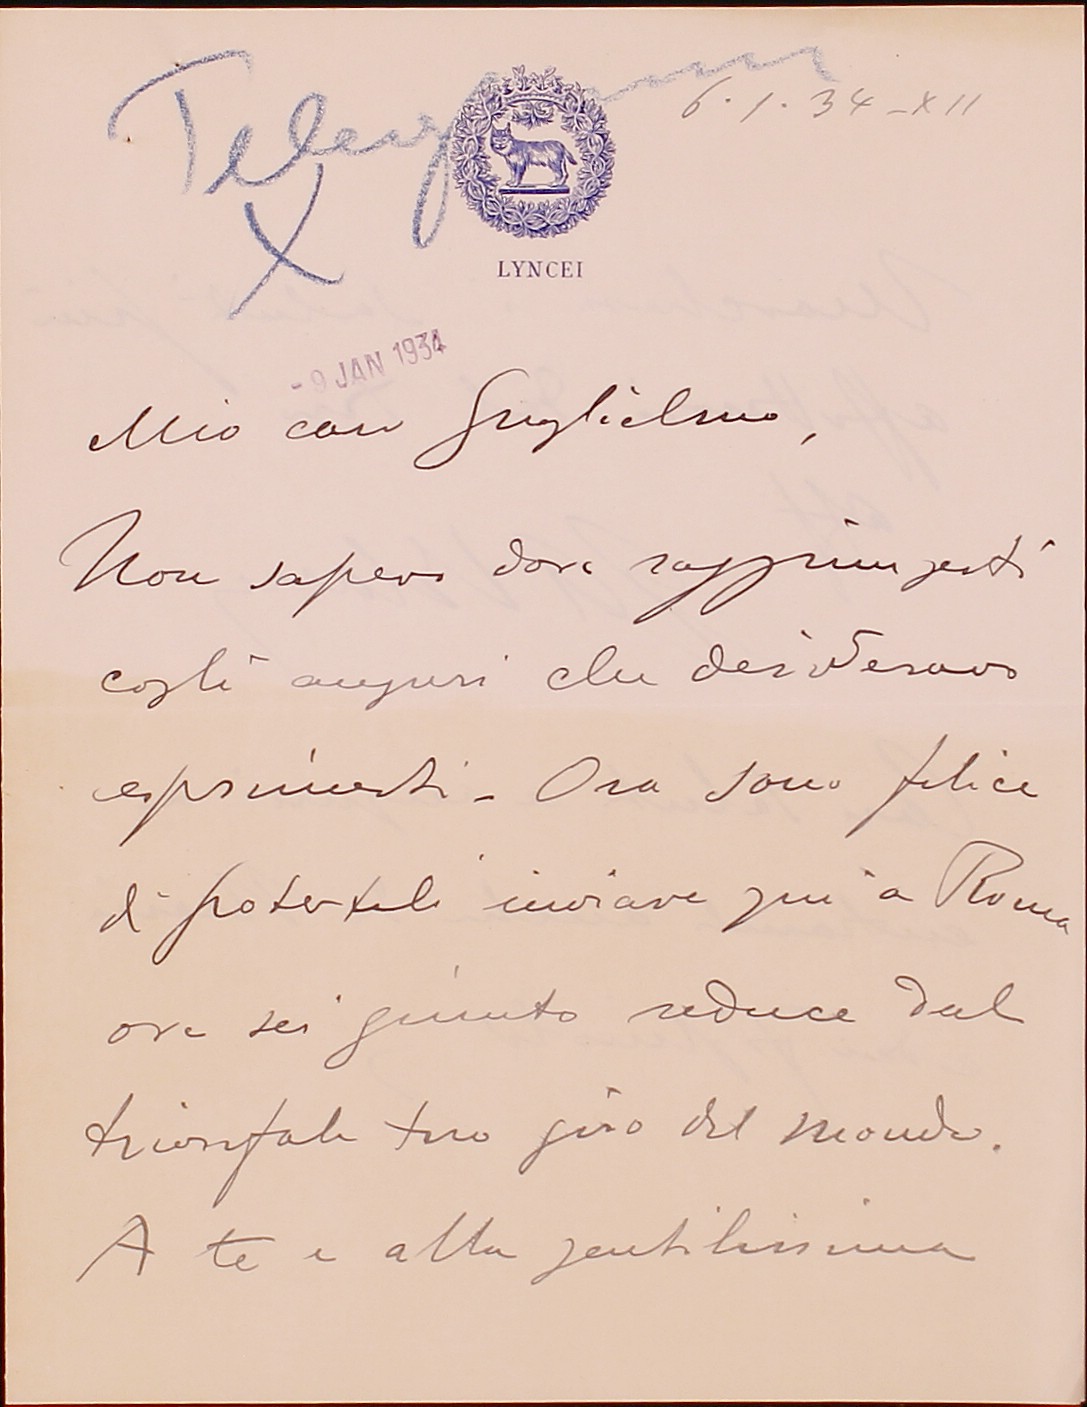 Telegramm
6.1.34-XII
X
LYNCEI
-9 JAN 1934
Mio caro Guglielmo,
Non sapevo dove raggiungerti
cogli auguri che desideravo
esprimerti - Ora sono felice
di poterteli inviare qui a Roma
ove sei giunto reduce dal
trionfale tuo giro del mondo.
A te e alla gentilissima